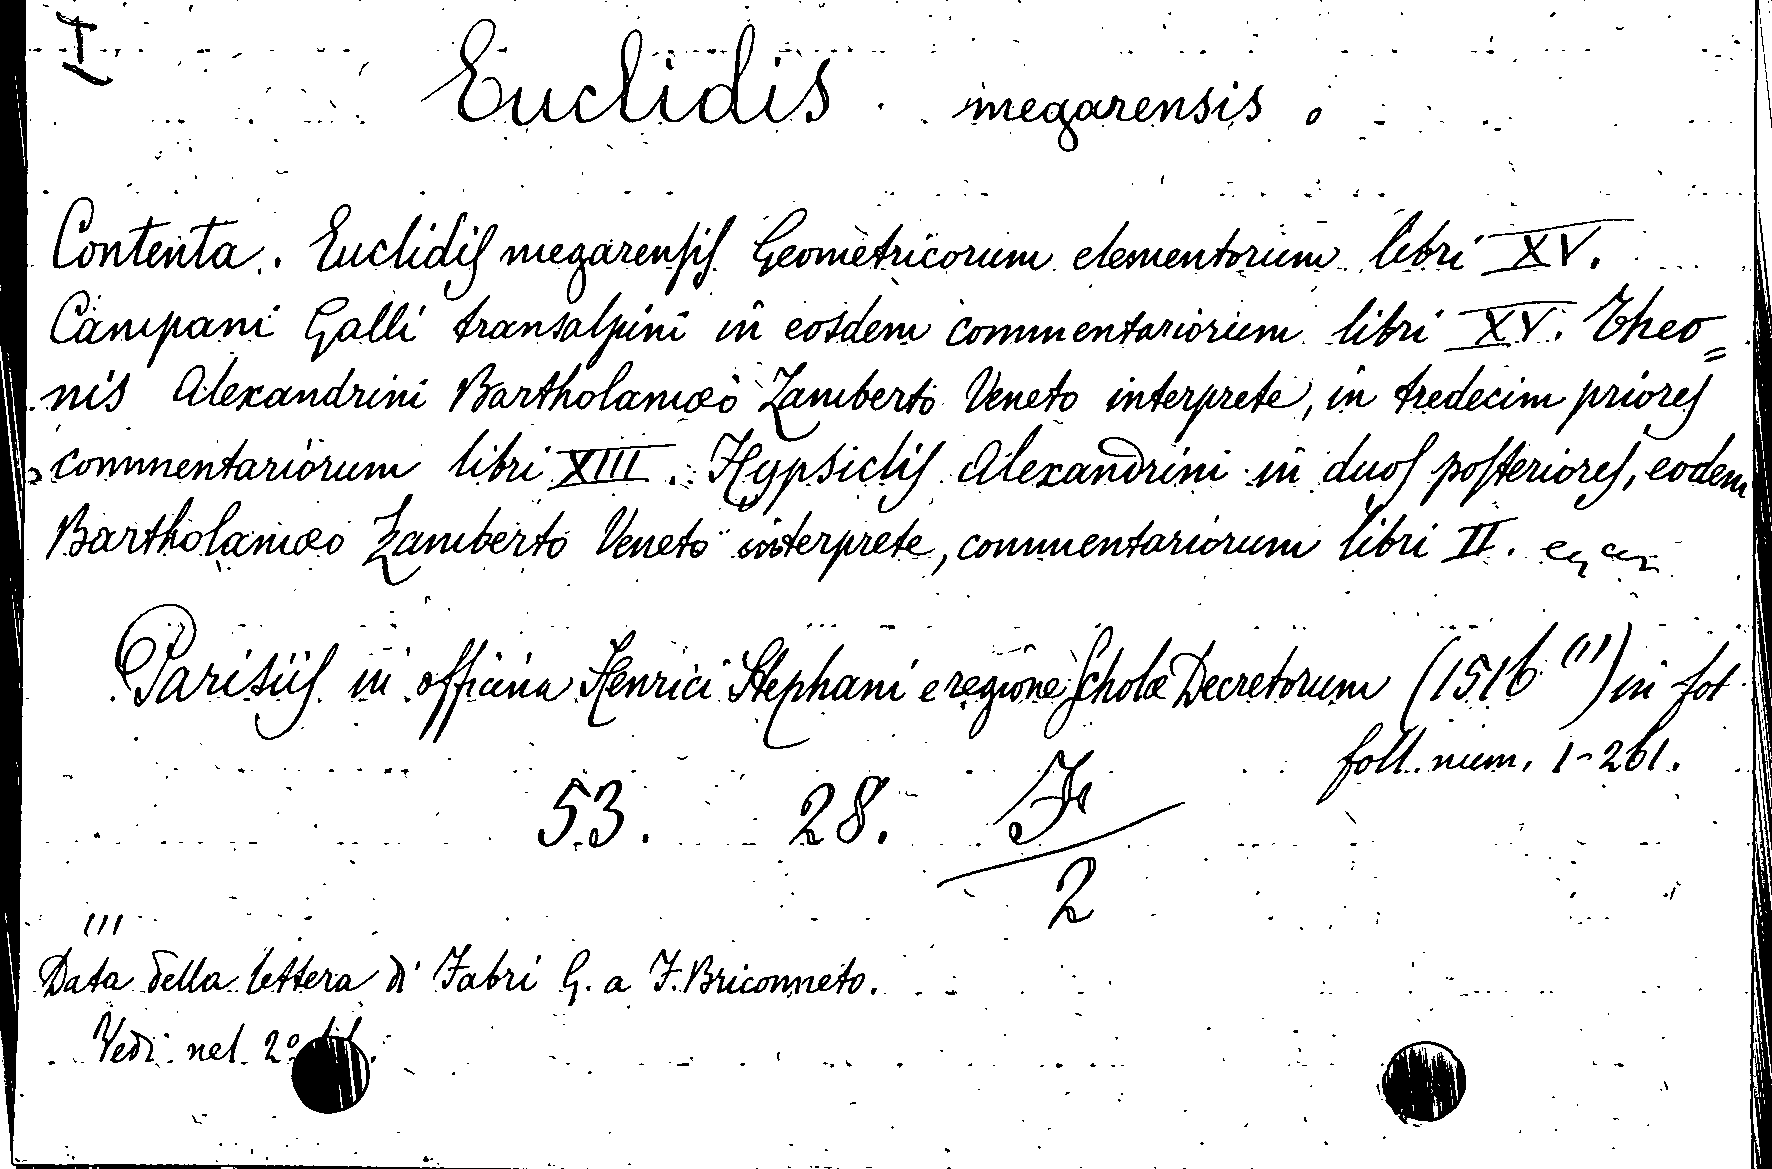 I
Euclidis megarensis.
Contenta. Euclidis megarensis Geometricorum elementorum libri XV.
Campani Galli transalpini in eosdem commentariorum libri XV. Theo=
nis Alexandrini Bartholamæo Zamberto Veneto interprete, in tredecim priores
commentariorum libri XIII. Hypsiclis Alexandrini in duos posteriores, eodem
Bartholamæo Zamberto Veneto interprete, commentariorum libri II.
Parisiis in officina Henrici Stephani e regione Scholæ Decretorum (1516 (1)) in fol
foll. num. 1-261.
53. 28. F
2
(1)
Data della lettera di Fabri G. a F. Briconneto.
Vedi nel 2°